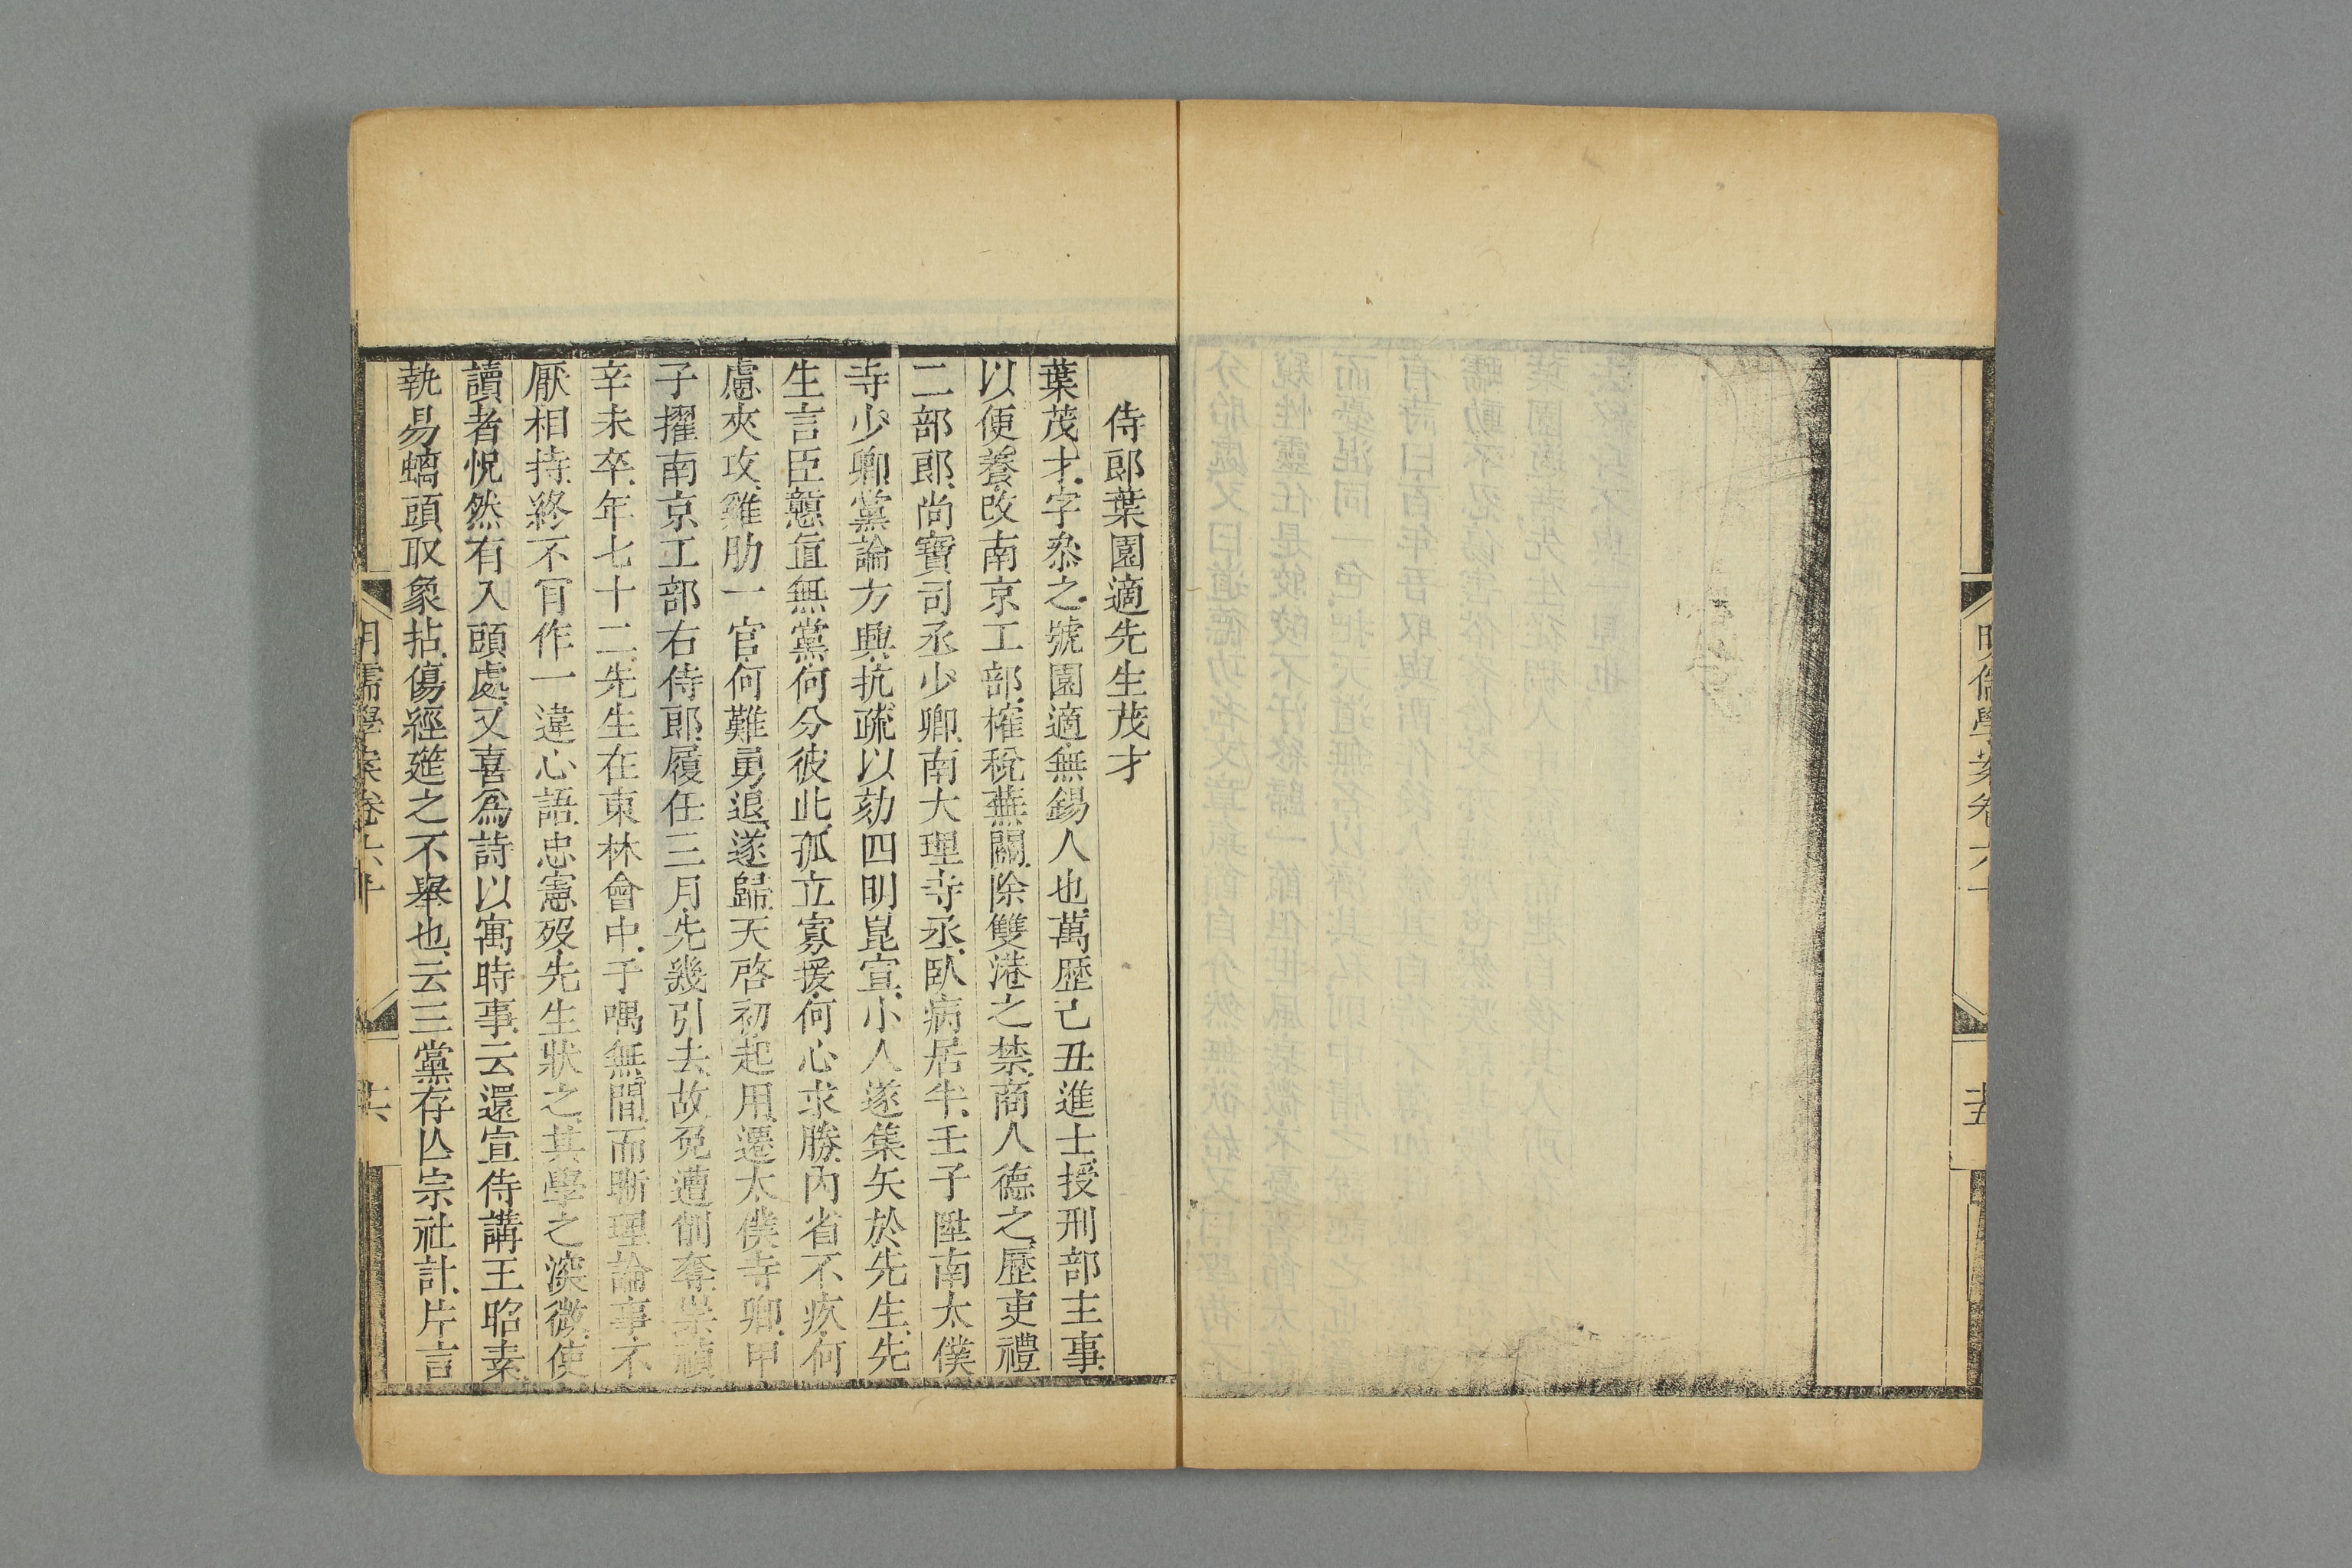 明儒學案卷六十
侍郎葉園適先生茂才
葉茂才字叅之號園適無錫人也萬歷己丑進士授刑部主事
以便養改南京工部榷稅蕪關除雙港之禁商人德之歷吏禮
二部郎尚寶司丞少卿南大理寺丞臥病居半壬子陞南太僕
寺少卿黨論方興抗疏以劾四明崑宣小人遂集矢於先生先
生言臣戇直無黨何分彼此孤立寡援何心求勝內省不疚何
慮夾攻雞肋一官何難勇退遂歸天啓初起用遷太僕寺卿甲
子擢南京工部右侍郎履任三月先幾引去故免遭削奪崇禎
辛未卒年七十二先生在東林會中于喁無間而晰理論事不
厭相持終不肎作一違心語忠憲歿先生狀之其學之深微使
讀者怳然有入頭處又喜爲詩以寓時事云還宣侍講王昭素
執易螭頭取象拈傷經筵之不舉也云三黨存亾宗社計片言
明儒學案卷六十